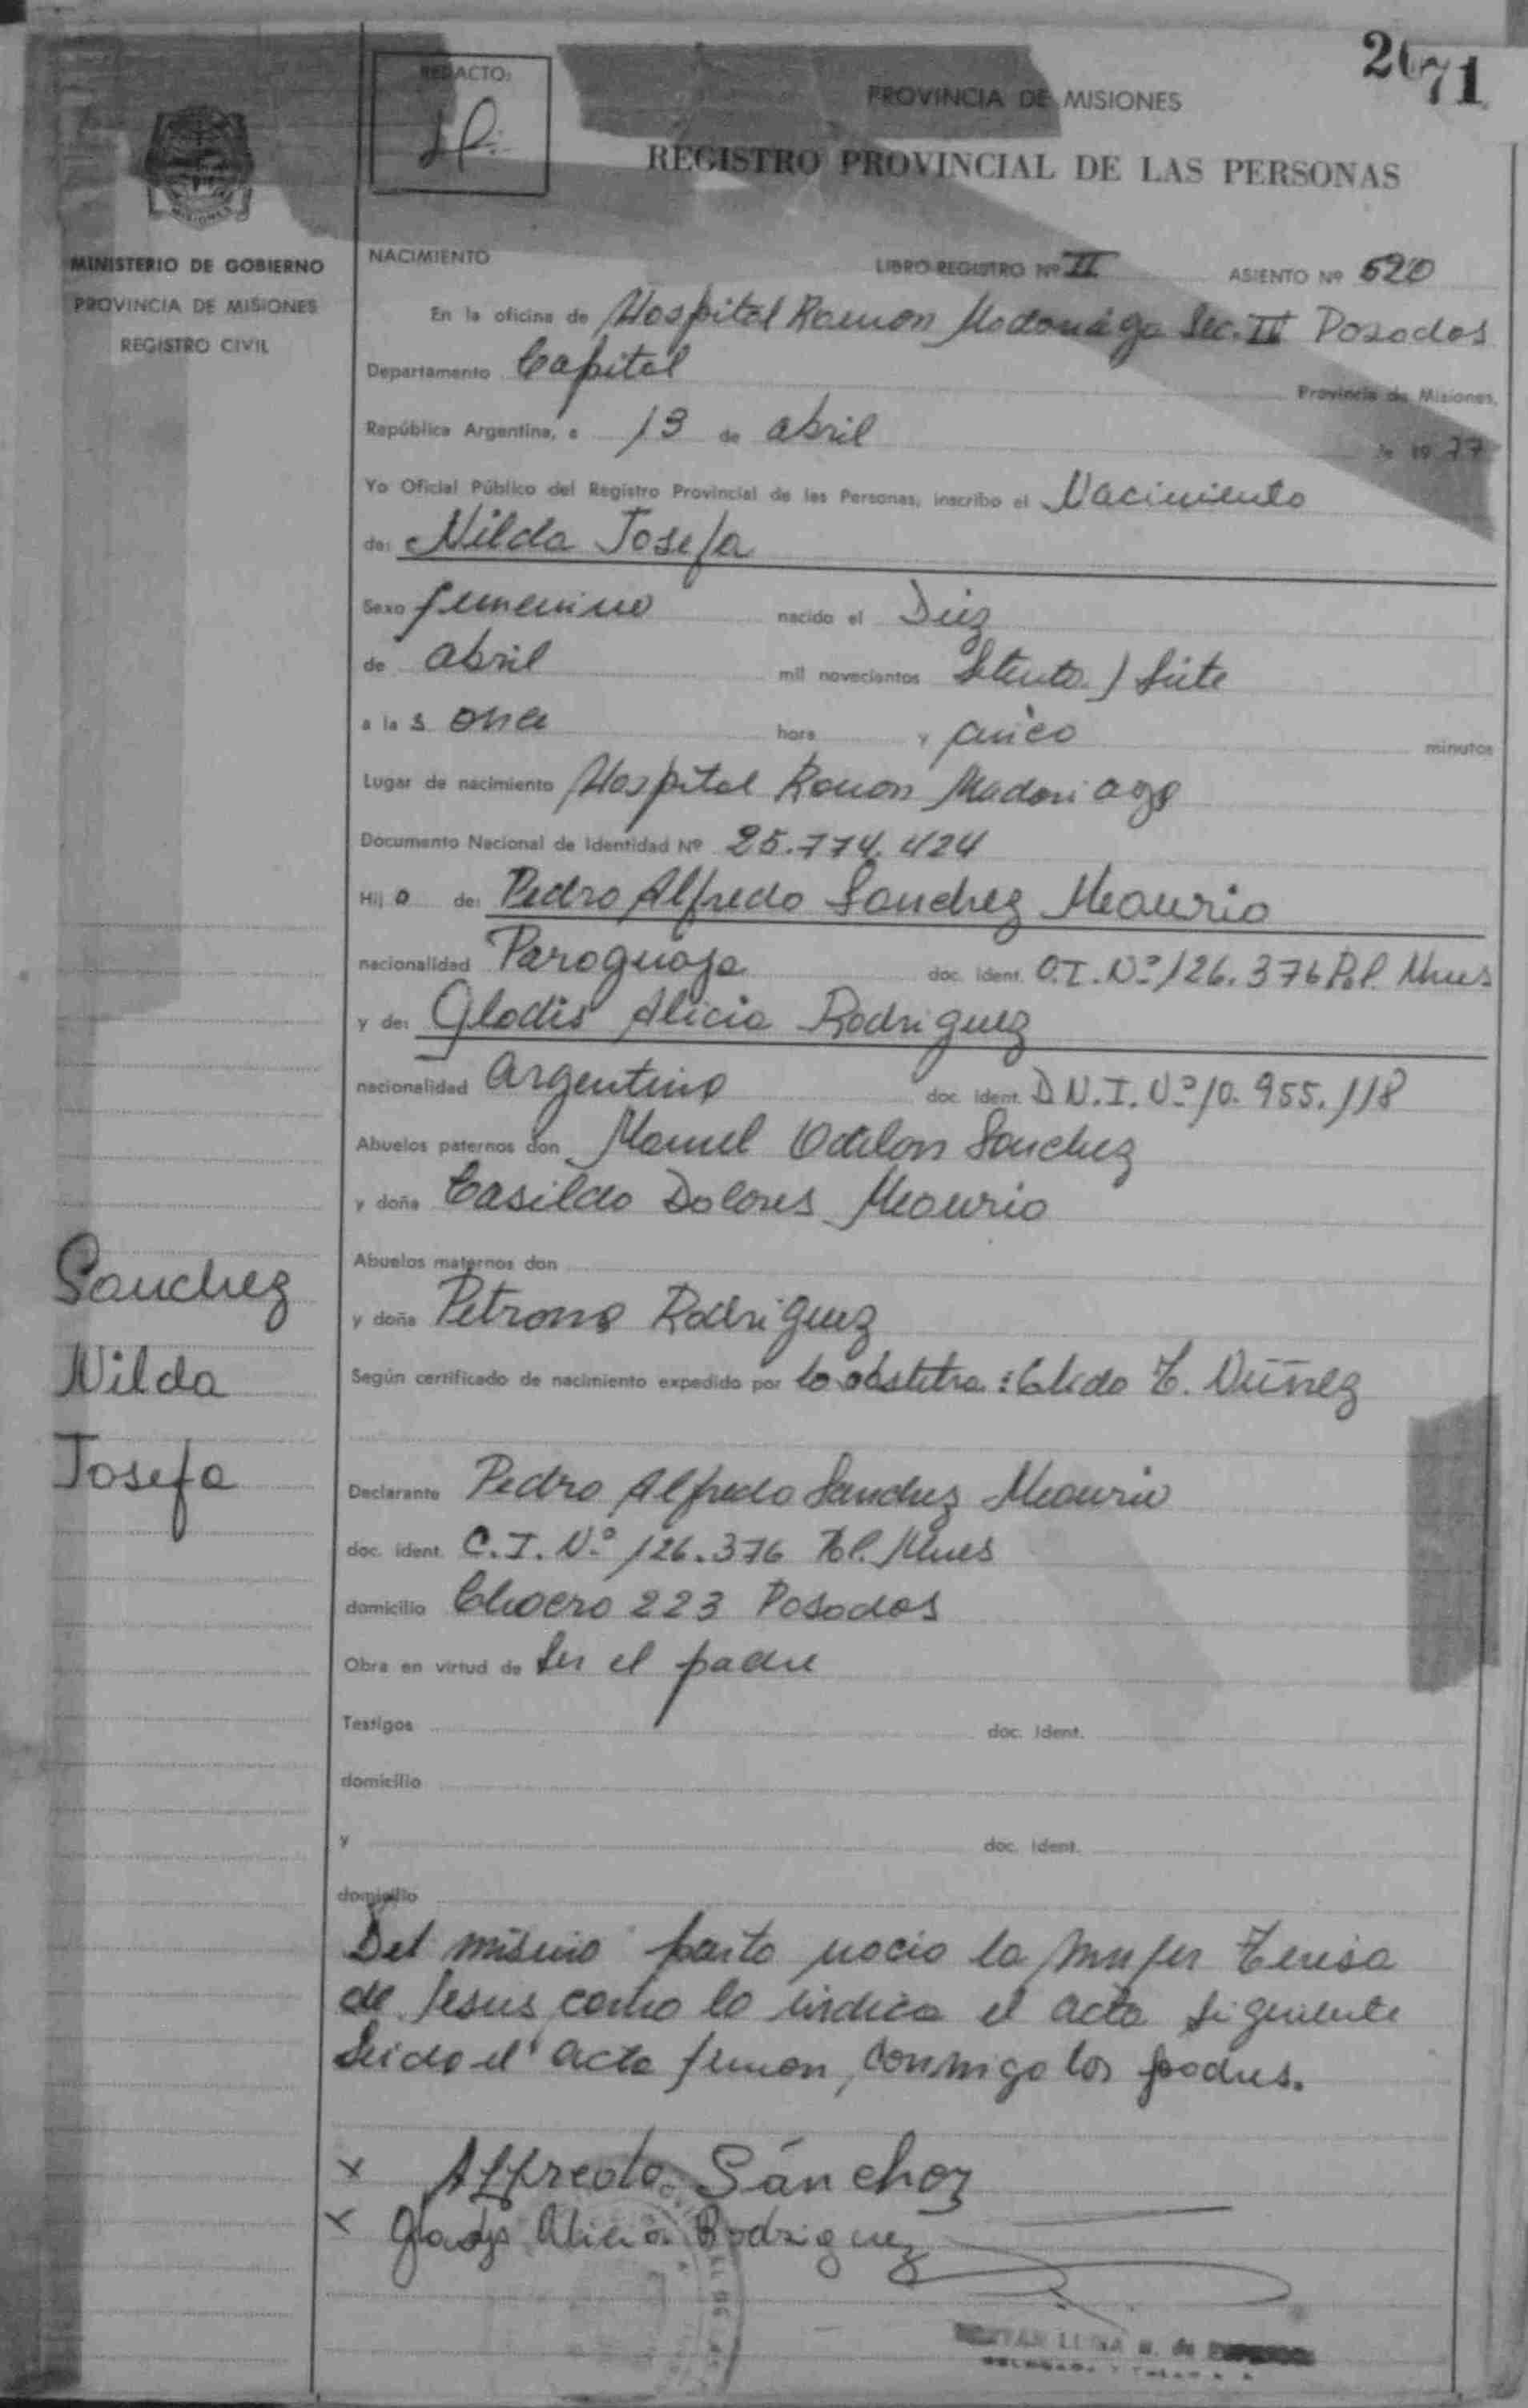 2071
REDACTO:
PROVINCIA DE MISIONES
REGISTRO PROVINCIAL DE LAS PERSONAS
MISIONES
MINISTERIO DE GOBIERNO
PROVINCIA DE MISIONES
REGISTRO CIVIL
NACIMIENTO LIBRO REGISTRO Nº II ASIENTO Nº 520
En la oficina de Hospital Ramon Madonaga Sec. IV Posadas
Departamento Capital Provincia de Misiones,
República Argentina, a 13 de abril de 19 77
Yo Oficial Público del Registro Provincial de las Personas, inscribo el Nacimiento
de: Nilda Josefa
Sexo femenino nacido el Diez
de abril mil novecientos Setenta y Siete
a la s once hora y cinco minutos
Lugar de nacimiento Hospital Ramon Madariaga
Documento Nacional de Identidad Nº 25.774.424
Hij a de: Pedro Alfredo Sanchez Meaurio
nacionalidad Paraguaya doc. ident. C.I. Nº 126.376 Pol. Mnes
y de: Gladis Alicia Rodriguez
nacionalidad Argentina doc. ident. D N.I. Nº 10.955.118
Abuelos paternos don Manuel Odilon Sanchez
y doña Casilda Dolores Meaurio
Abuelos maternos don
y doña Petrona Rodriguez
Según certificado de nacimiento expedido por la obstetra: Elida T. Núñez
Sanchez
Nilda
Josefa
Declarante Pedro Alfredo Sanchez Meaurio
doc. ident. C.I. Nº 126.376 Pol. Mnes
domicilio Chaero 223 Posadas
Obra en virtud de Ser el padre
Testigos doc. ident.
domicilio
y doc. ident.
domicilio
Del mismo parto nacio la mujer Teresa
de Jesus como lo indica el acta siguiente
Leida el acta firman, conmigo los padres.
x Alfredo Sánchez
x Gladys Alicia Rodriguez